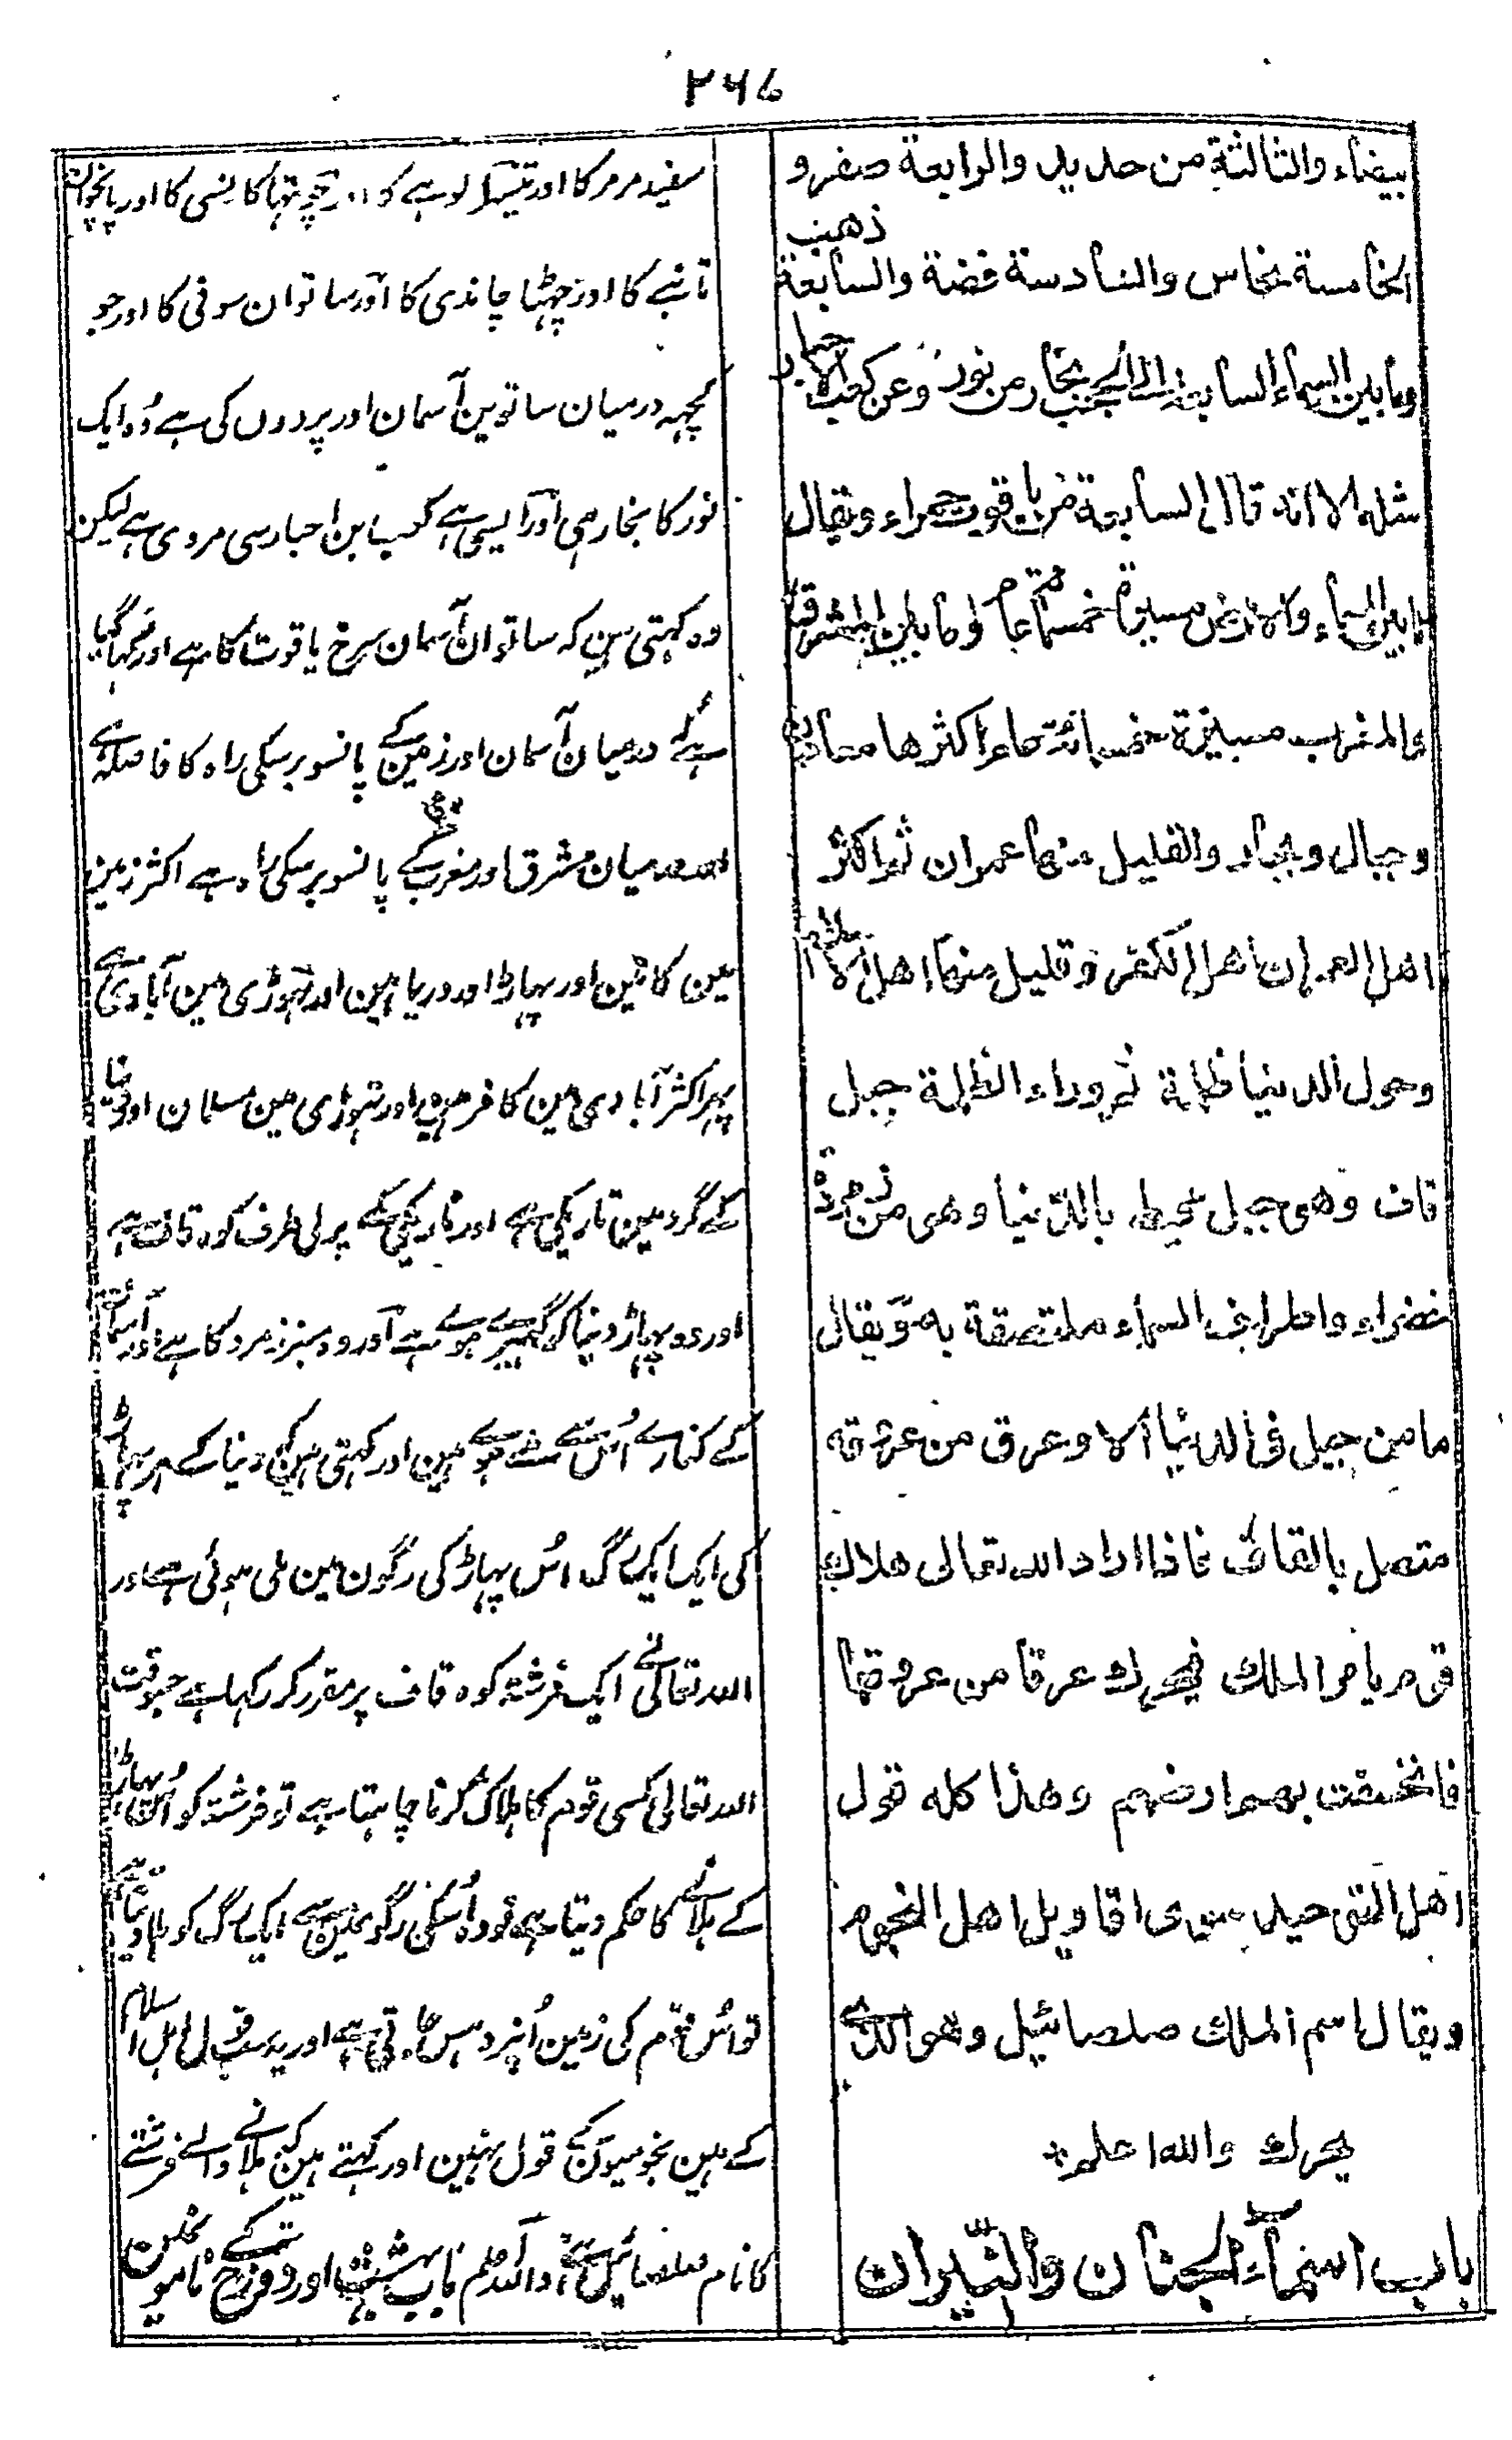 ۲۶۷
بيضاء والثالثة من حديد والرابعة صفر و
الخامسة نحاس والسادسة فضة والسابعة ذهب
وما بين السماء السابعة الى الحجب بحار من نور وعن كعب الاحبار
مثله الا انه قال السابعة من ياقوت حمراء ويقال
ما بين السماء والارض مسيرة خمسمائة عام وما بين المشرق
والمغرب مسيرة خمسمائة عام اكثرها مفاوز
وجبال وبحار والقليل منها عمران ثم اكثر
اهل العمران اهل الكفر وقليل منها اهل الاسلام
وحول الدنيا ظلمة ثم وراء الظلمة جبل
قاف وهى جبل محيط بالدنيا وهى من زمردة
خضراء واطراف السماء ملتصقة به ويقال
ما من جبل فى الدنيا الا وعرق من عروقه
متصل بالقاف فاذا اراد الله تعالى هلاك
قوم يامر الملك فيحرك عرقا من عروقها
فانخسفت بهم ارضهم وهذا كله قول
اهل التوحيد سوى اقاويل اهل النجوم
ويقال اسم الملك صلصائيل وهو الذى
يحرك والله اعلم
باب اسماء الجنان والنيران
سفید مرمر کا اور تیسرا لوہے کا اور چوتہا کانسی کا اور پانچوان
تانبے کا اور چہٹا چاندی کا اور ساتوان سونی کا اور جو
کچہہ درمیان ساتوین آسمان اور پردوں کی ہے وہ ایک
نور کا بخار ہی اور ایسی ہے کعب بن احبار سی مروی ہے لیکن
وہ کہتی ہین کہ ساتوان آسمان سرخ یاقوت کا ہے اور کہا گیا
ہے کہ درمیان آسمان اور زمین کے پانسو برسکی راہ کا فاصلہ ہے
اور درمیان مشرق اور مغرب کے بھی پانسو برسکی راہ ہے اکثر زمین
مین کانین اور پہاڑ اور دریا ہین اور تہوڑی مین آبادی ہے
پہر اکثر آبادی مین کافر ہین اور تہوڑی مین مسلمان اور دنیا
کے گرد مین تاریکی ہے اور تاریکی کے پرلی طرف کوہ قاف ہے
اور وہ پہاڑ دنیا کو گہیرے ہوے ہے اور وہ سبز زمرد کا ہے اور آسمان
کے کنارے اُس سے ملے ہوے ہین اور کہتی ہین کہ دنیا کے ہر پہاڑ
کی ایک ایک رگ اُس پہاڑ کی رگون مین ملی ہوئی ہے اور
اللہ تعالی نے ایک فرشتہ کوہ قاف پر مقرر کر رکہا ہے جسوقت
اللہ تعالی کسی قوم کا ہلاک کرنا چاہتا ہے تو فرشتہ کو اُس پہاڑ
کے ہلانے کا حکم دیتا ہے تو وہ اُسکی رگون مین سے ایک رگ کو ہلا دیتا ہے
تو اُس قوم کی زمین اُنپر دہس جاتی ہے اور یہ سب قول اہل اسلام
کے ہین نجومیون کے قول نہین اور کہتے ہین کہ ہلانے والے فرشتے
کا نام صلصائیل ہے واللہ اعلم باب بہشت اور دوزخ کے نامون مین